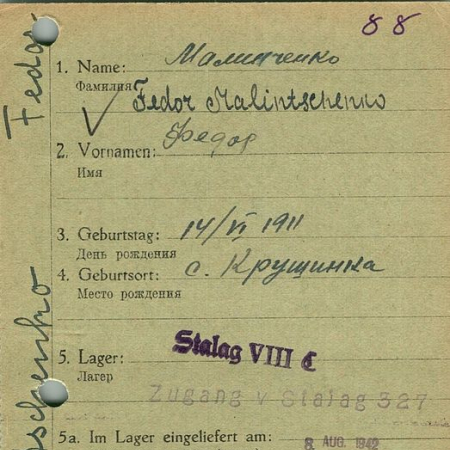 88
1. Name: Малинченко
Фамилия Fedor Malintschenko
2. Vornamen: Федор
Имя
3. Geburtstag: 14/VI 1911
День рождения
4. Geburtsort: с. Крущинка
Место рождения
5. Lager: Stalag VIII C
Лагер
Zugang v Stalag 327
5a. Im Lager eingeliefert am: 8. AUG. 1942
Fedor